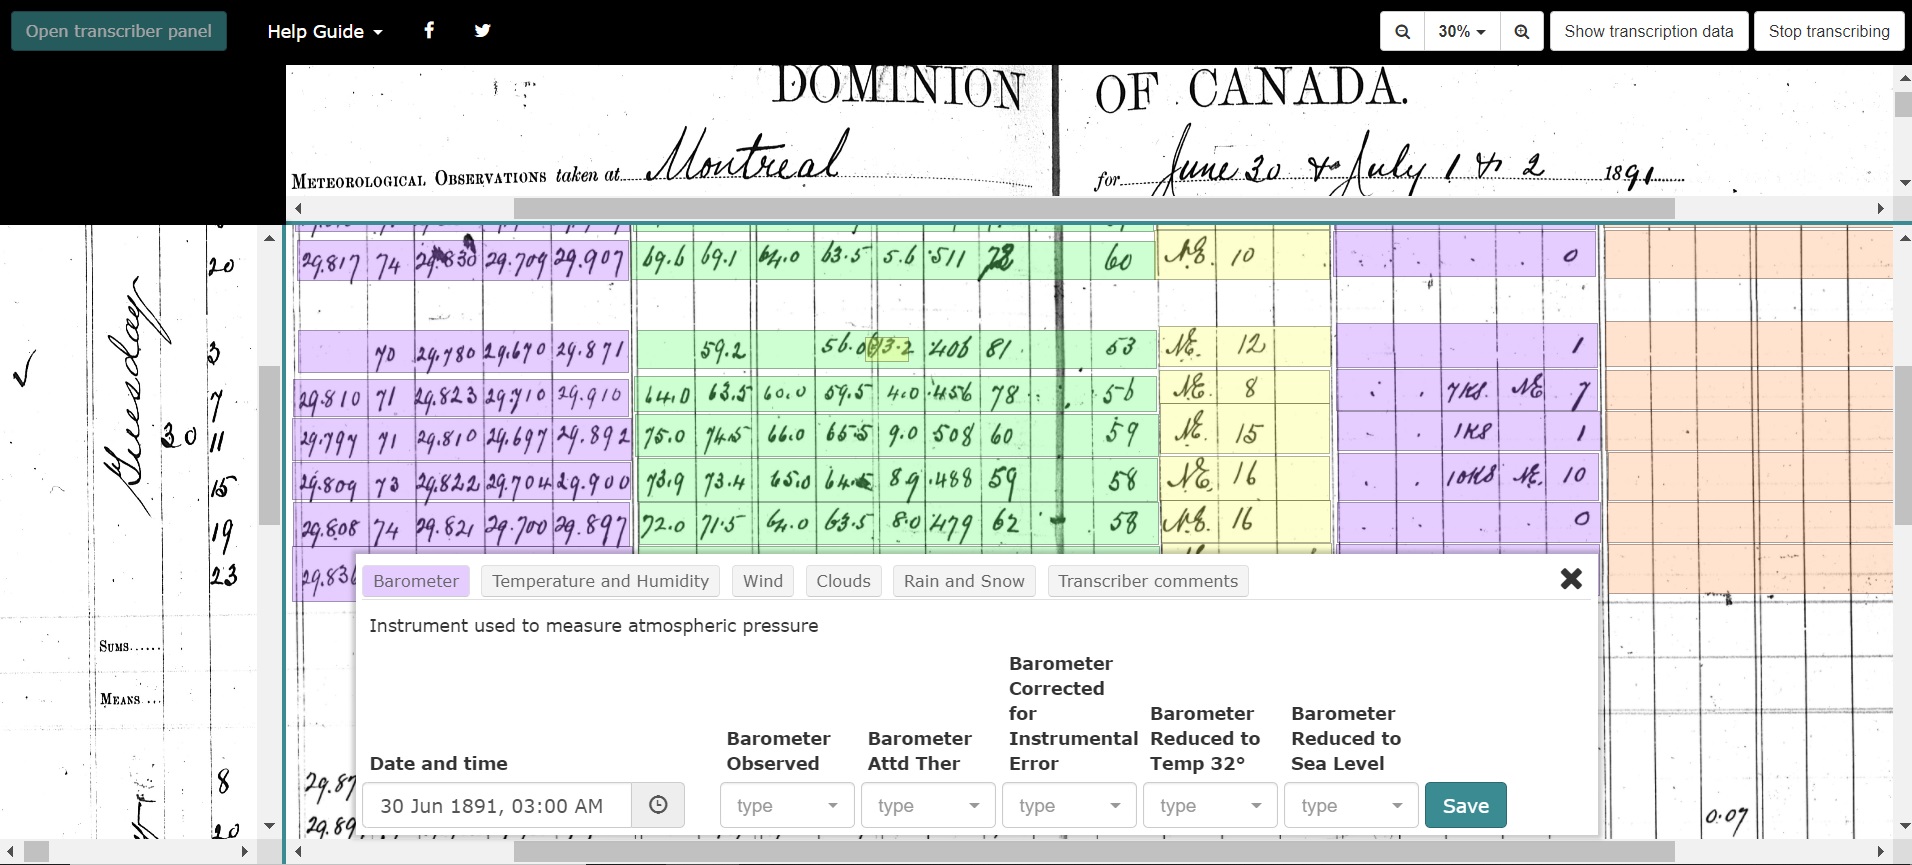 Open transcriber panel Help Guide 30% Show transcription data Stop transcribing
DOMINION OF CANADA.
METEOROLOGICAL OBSERVATIONS taken at Montreal for June 30 & July 1 & 2 1891
20 29.817 74 29.830 29.709 29.907 69.6 69.1 64.0 63.5 5.6 .511 72 60 N.E. 10 0
3 70 29.780 29.670 29.871 59.2 56.0 3.2 .406 81 53 N.E. 12 1
Tuesday
7 29.810 71 29.823 29.710 29.910 64.0 63.5 60.0 59.5 4.0 .456 78 56 N.E. 8 7KS. NE 7
30 11 29.797 71 29.810 29.697 29.892 75.0 74.5 66.0 65.5 9.0 508 60 59 N.E. 15 1KS 1
15 29.809 73 29.822 29.704 29.900 73.9 73.4 65.0 64.5 8.9 .488 59 58 N.E. 16 10KS NE. 10
19 29.808 74 29.821 29.700 29.897 72.0 71.5 64.0 63.5 8.0 479 62 58 N.E. 16 0
23 29.836
Barometer Temperature and Humidity Wind Clouds Rain and Snow Transcriber comments
Instrument used to measure atmospheric pressure
SUMS
MEANS
Date and time
Barometer Observed
Barometer Attd Ther
Barometer Corrected for Instrumental Error
Barometer Reduced to Temp 32°
Barometer Reduced to Sea Level
30 Jun 1891, 03:00 AM type type type type type Save
8 29.87
0.07
20 29.89